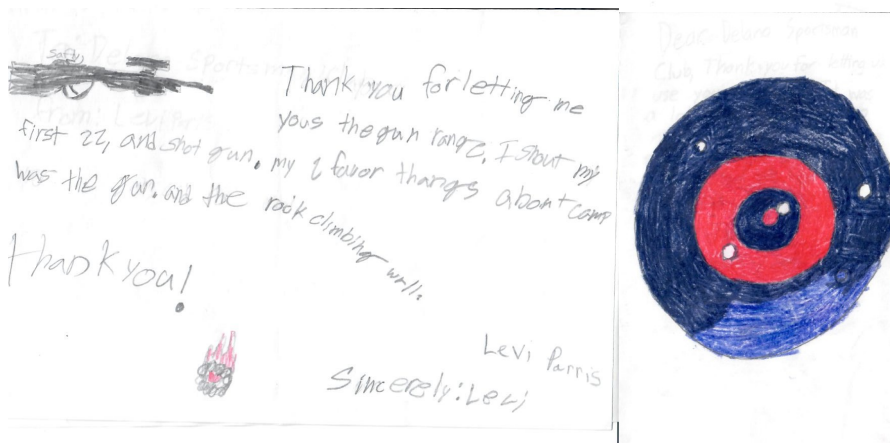 Safty
Thank you for letting me
yous the gun range. I shout my
first 22, and shot gun. my 2 favor thangs about camp
was the gun. and the rock climbing wall.
Thank you!
Levi Parris
Sincerely: Levi
Dear Delano Sportsman
Club, Thank you for letting us
use